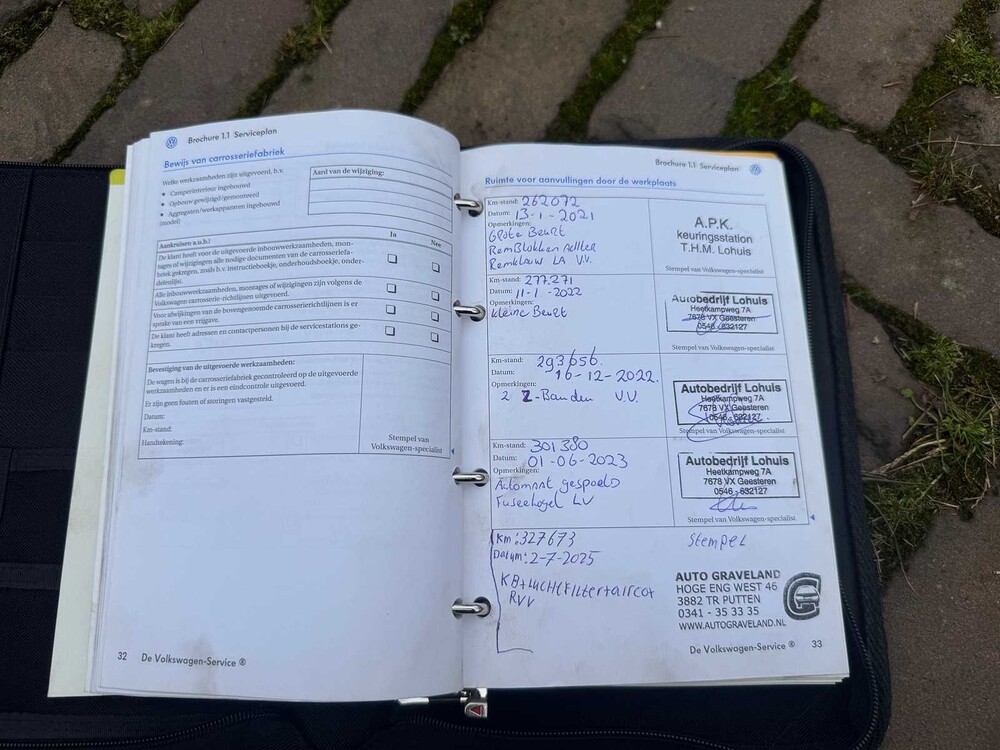 Brochure 1.1 Serviceplan
Bewijs van carrosseriefabriek
Welke werkzaamheden zijn uitgevoerd, b.v.
• Camperinterieur ingebouwd
• Opbouw gewijzigd/gemonteerd
• Aggregaten/werkapparaten ingebouwd
(model)
Aard van de wijziging:
Aankruisen a.u.b.!
Ja
Nee
De klant heeft voor de uitgevoerde inbouwwerkzaamheden, mon-
tages of wijzigingen alle nodige documenten van de carrosseriefa-
briek gekregen, zoals b.v. instructieboekje, onderhoudsboekje, onder-
delenlijst.
Alle inbouwwerkzaamheden, montages of wijzigingen zijn volgens de
Volkswagen carrosserie-richtlijnen uitgevoerd.
Voor afwijkingen van de bovengenoemde carrosserierichtlijnen is er
sprake van een vrijgave.
De klant heeft adressen en contactpersonen bij de servicestations ge-
kregen.
Bevestiging van de uitgevoerde werkzaamheden:
De wagen is bij de carrosseriefabriek gecontroleerd op de uitgevoerde
werkzaamheden en er is een eindcontrole uitgevoerd.
Er zijn geen fouten of storingen vastgesteld.
Datum:
Km-stand:
Handtekening:
Stempel van
Volkswagen-specialist
32 De Volkswagen-Service ®
Brochure 1.1 Serviceplan
Ruimte voor aanvullingen door de werkplaats
Km-stand: 262072
Datum: 13-1-2021
Opmerkingen:
Grote Beurt
Remblokken Achter
Remklauw LA V.V.
A.P.K.
keuringsstation
T.H.M. Lohuis
Stempel van Volkswagen-specialist
Km-stand: 277.271
Datum: 11-1-2022
Opmerkingen:
Kleine Beurt
Autobedrijf Lohuis
Heetkampweg 7A
7678 VX Geesteren
0546 - 632127
Stempel van Volkswagen-specialist
Km-stand: 293656.
Datum: 16-12-2022.
Opmerkingen:
2 Z-Banden V.V.
Autobedrijf Lohuis
Heetkampweg 7A
7678 VX Geesteren
0546 - 632127
Stempel van Volkswagen-specialist
Km-stand: 301380
Datum: 01-06-2023
Opmerkingen:
Automaat gespoeld
Fuseekogel LV
Autobedrijf Lohuis
Heetkampweg 7A
7678 VX Geesteren
0546 - 632127
Stempel van Volkswagen-specialist
Km: 327673
Datum: 2-7-2025
KB+luchtfilter+airco+
RVV
Stempel
AUTO GRAVELAND
HOGE ENG WEST 46
3882 TR PUTTEN
0341 - 35 33 35
WWW.AUTOGRAVELAND.NL
De Volkswagen-Service ® 33